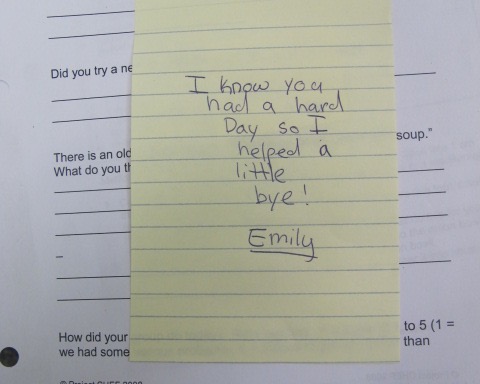 Did you try a ne
I know you
had a hard
Day so I
helped a
little
bye!
Emily
soup."
There is an old
What do you th
to 5 (1 =
than
How did your
we had some
© Project